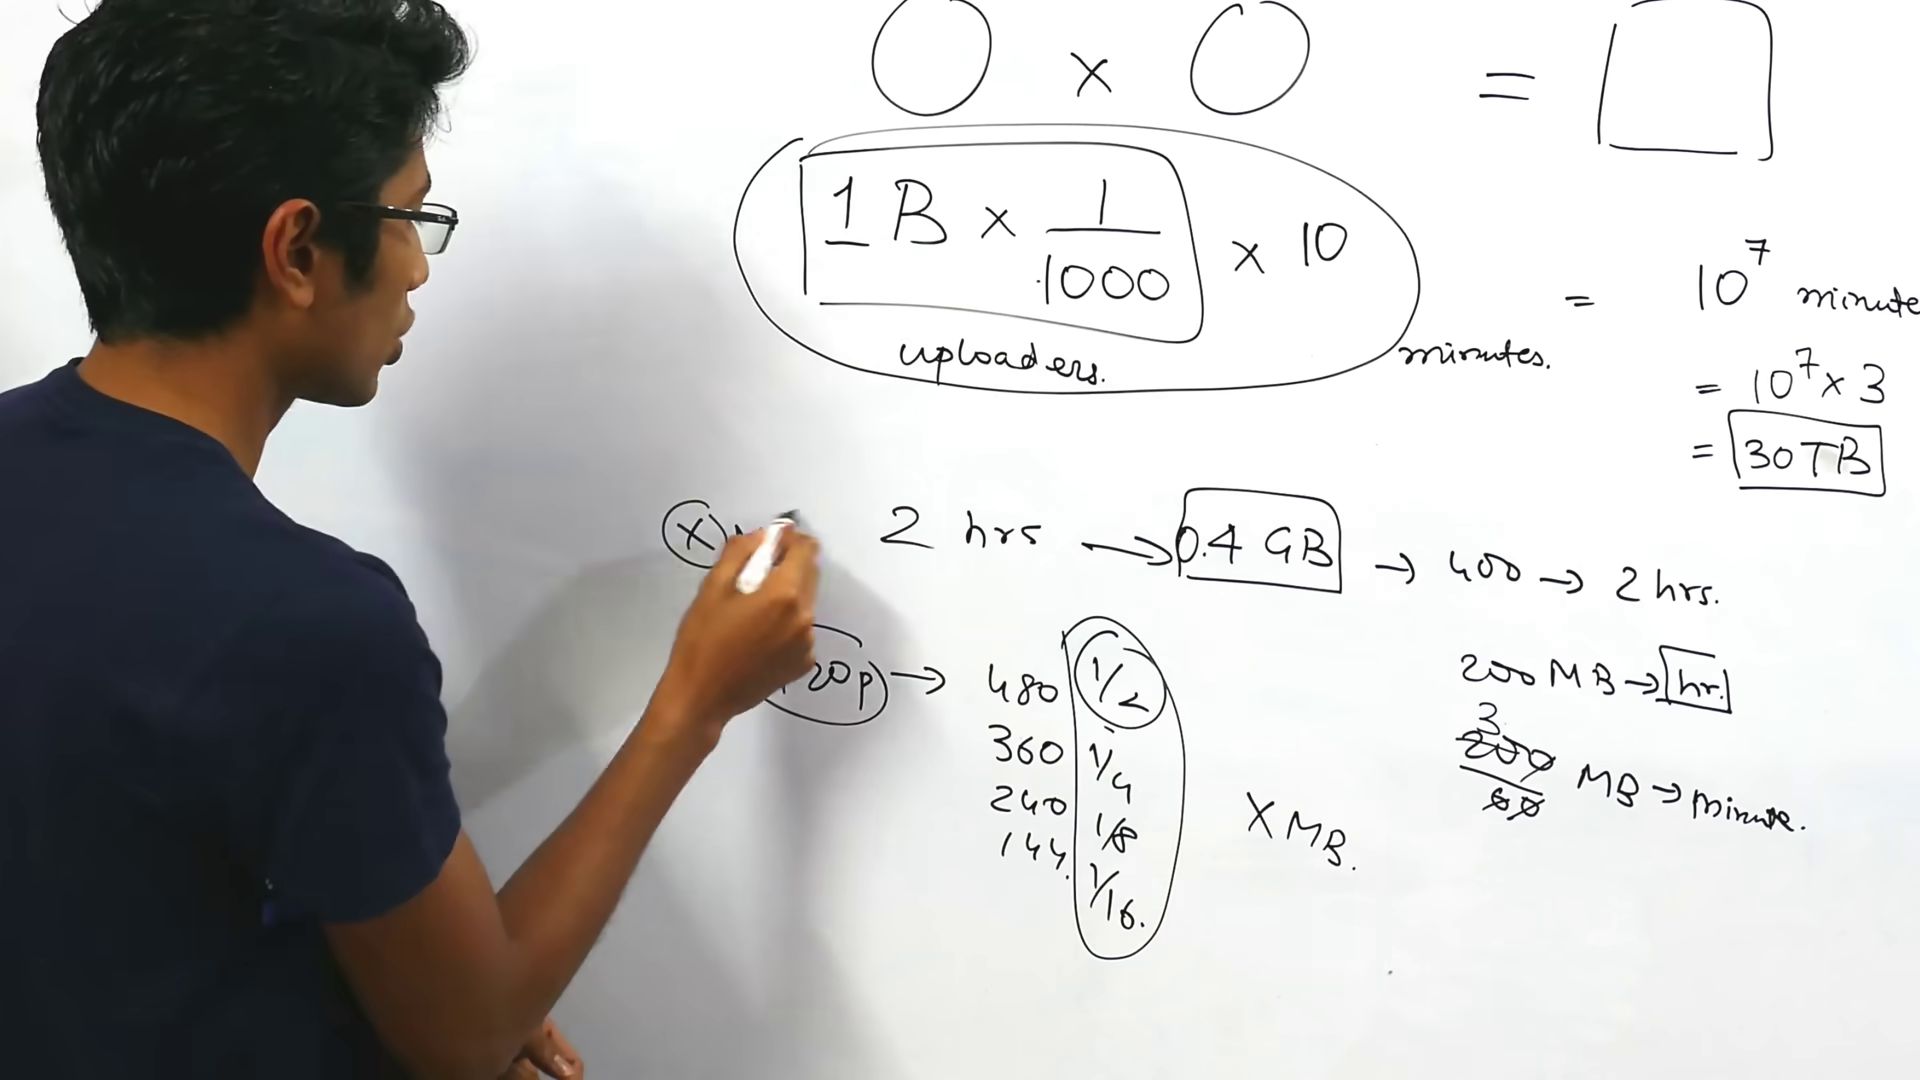 x =
1 B x 1/1000 x 10
uploaders.
minutes.
= 10^7 minute
= 10^7 x 3
= 30 TB
X 2 hrs → 0.4 GB → 400 → 2 hrs.
20p → 480 1/2
360 1/4
240 1/8
144. 1/16.
X MB.
200 MB → hr.
3
200/60 MB → minute.